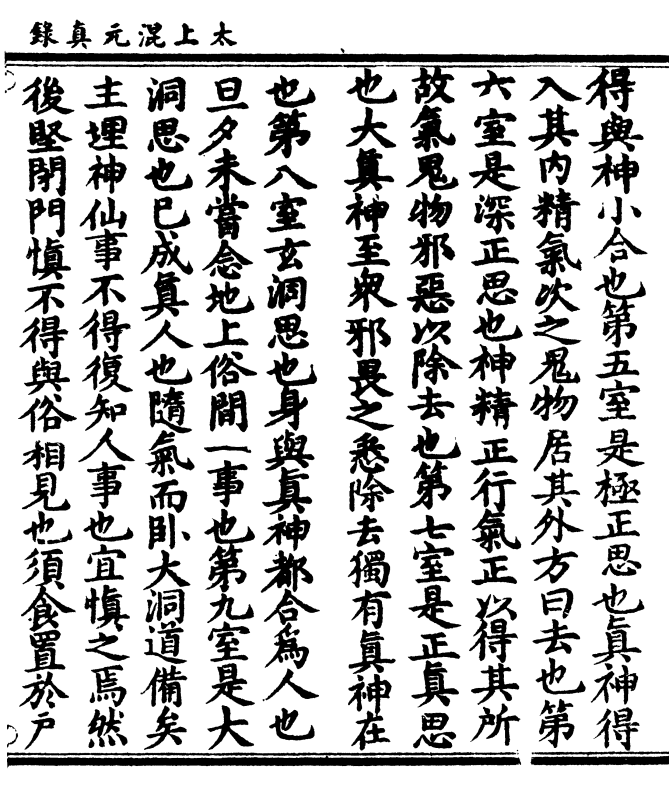 太上混元真錄
得與神小合也第五室是極正思也真神得
入其内精氣次之鬼物居其外方曰去也第
六室是深正思也神精正行氣正以得其所
故氣鬼物邪惡以除去也第七室是正真思
也大真神至衆邪畏之悉除去獨有真神在
也第八室玄洞思也身與真神都合為人也
旦夕未當念地上俗間一事也第九室是大
洞思也已成真人也隨氣而卧大洞道備矣
主埋神仙事不得復知人事也宜慎之焉然
後堅閉門慎不得與俗相見也須食置於戶